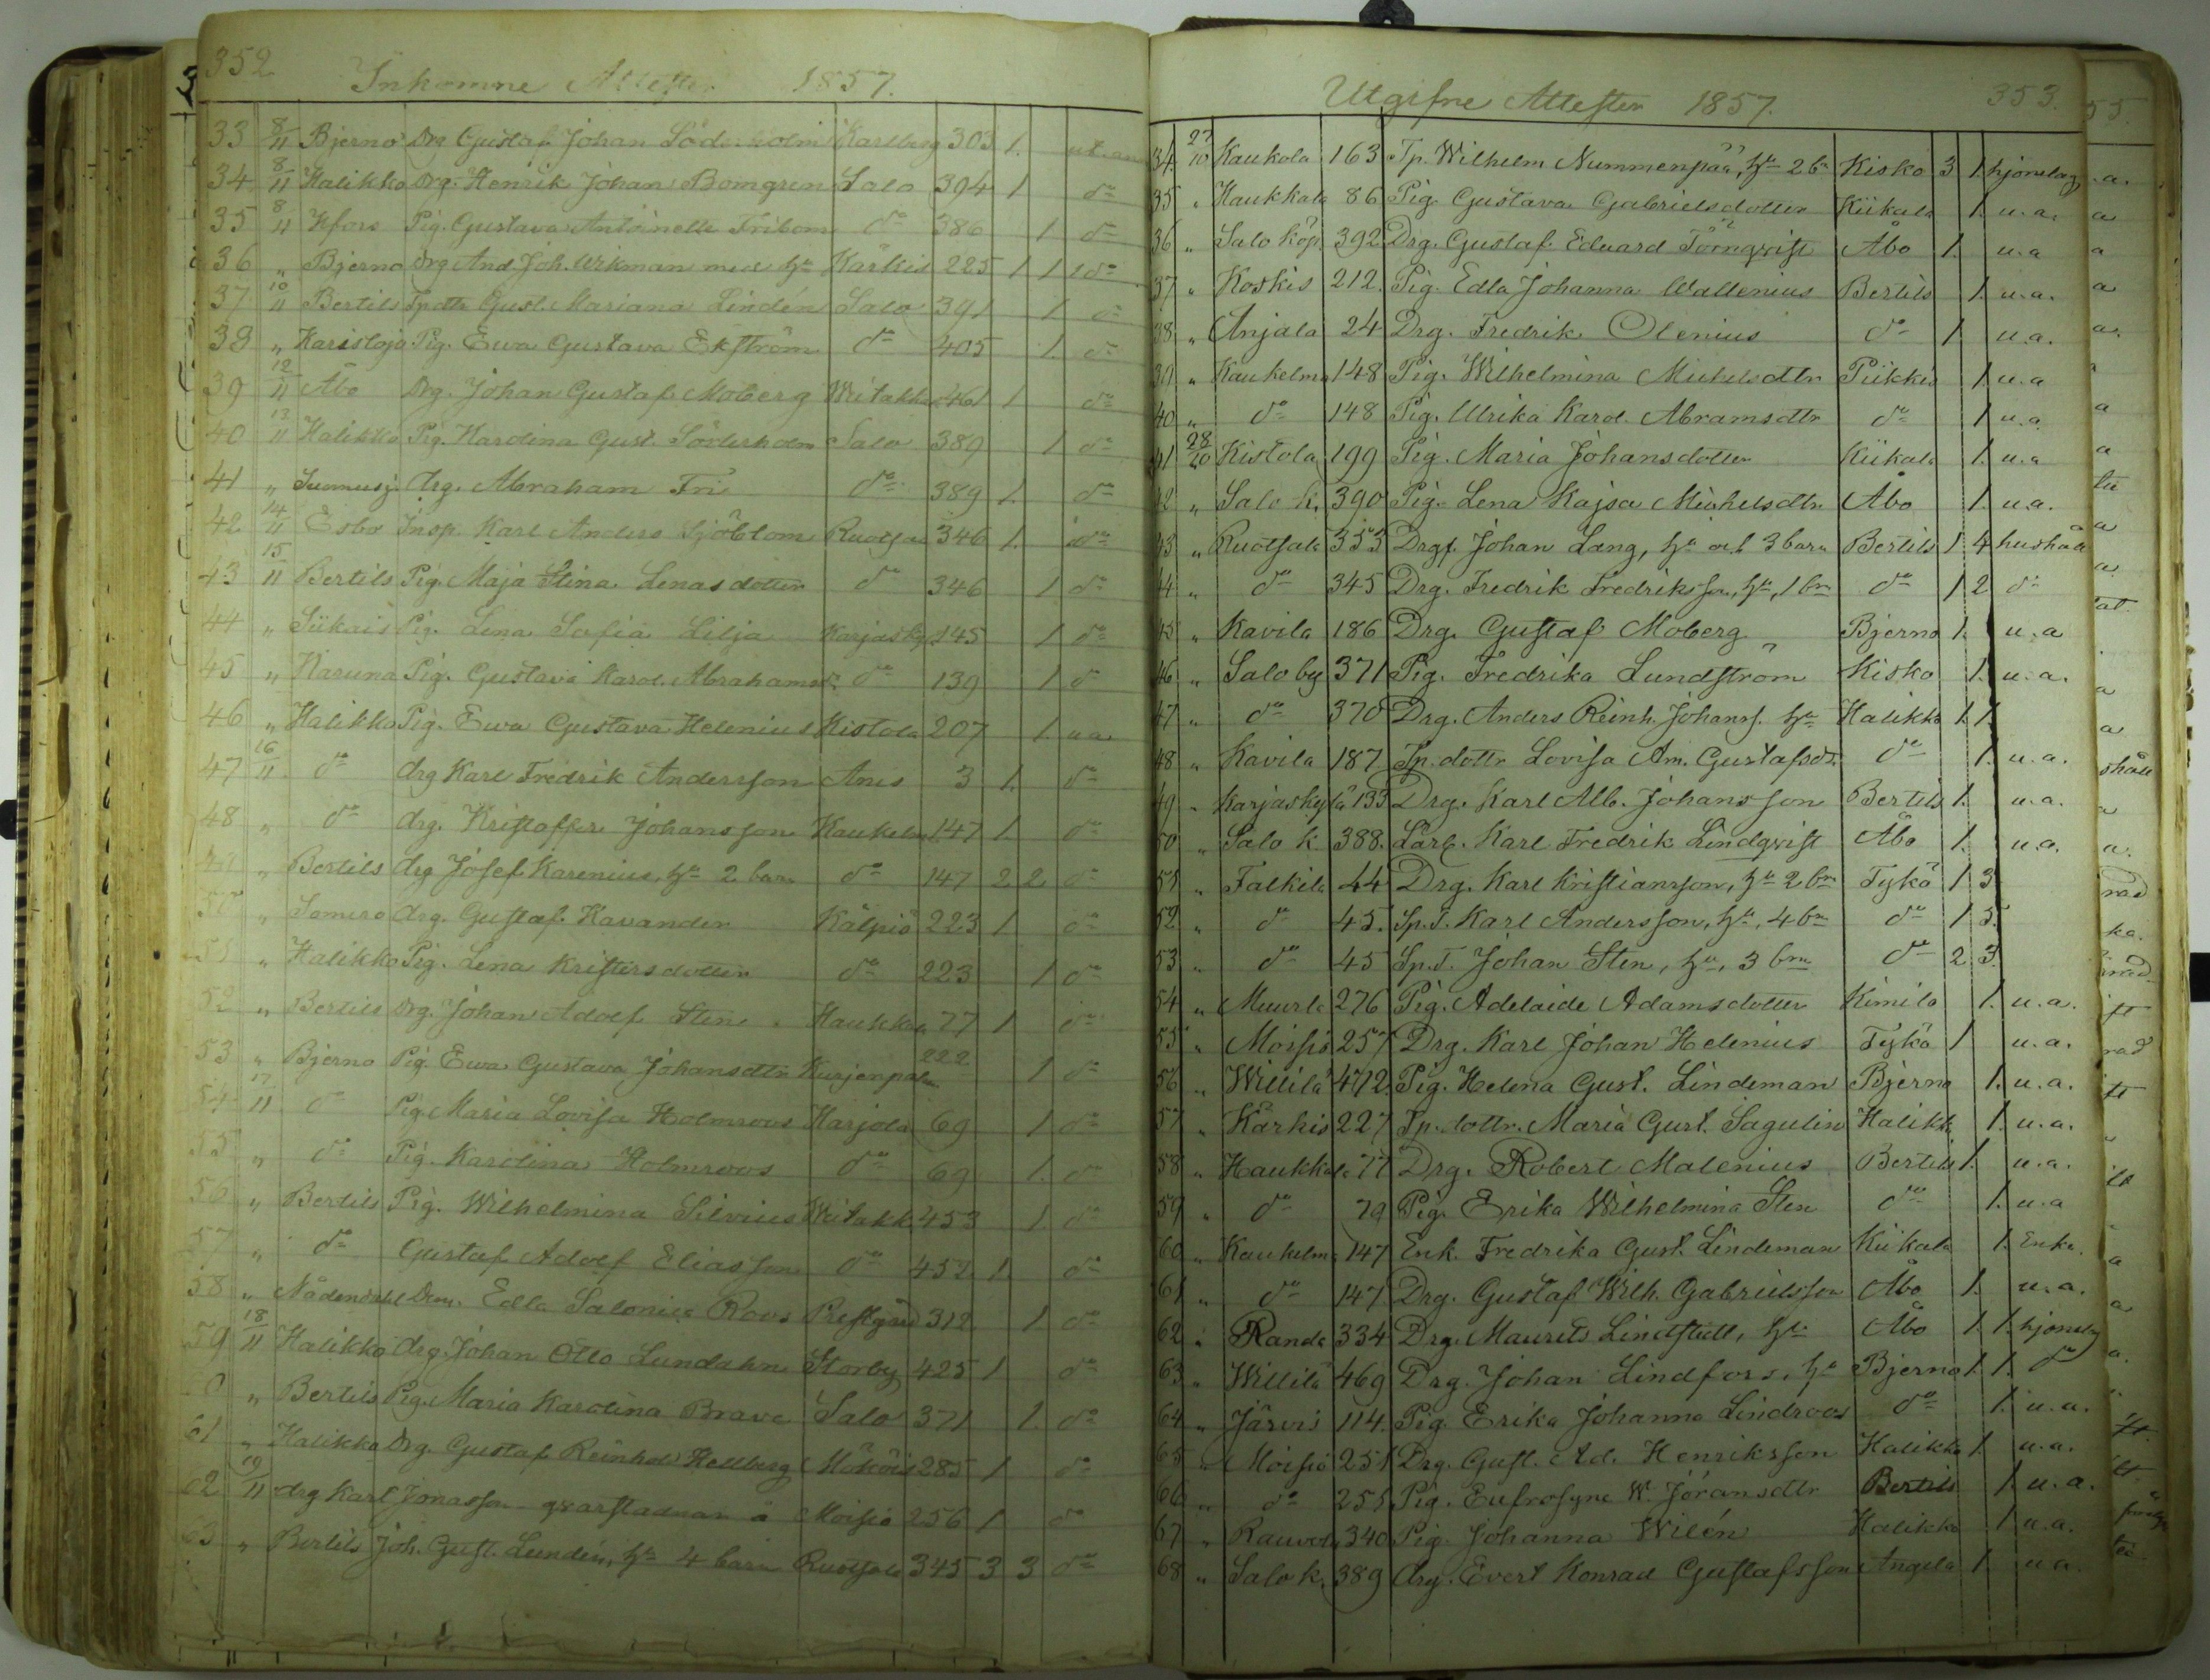 352
Inkomne Attester 1857.
33 8/11 Bjerno Drg Gustaf Johan Söderholm Karlberg 303 1.
34 8/11 Halikko Drg. Henrik Johan Bomgren Salo 394 1 do
35 8/11 Hfors Pig. Gustava Antoinette Fribom do 386 1 do
36 " Bjerno Drg And. Joh. Wikman med hu Kärkis 225 1 1 do
37 10/11 Bertils Tp dtr Gust. Mariana Lindén Salo 391 1 do
38 " Karisloja Pig. Ewa Gustava Ekström do 405 1. do
39 12/11 Åbo Drg. Johan Gustaf Moberg 461 1 do
40 13/11 Halikko Pig. Karolina Gust. Söderholm Salo 389 1 do
41 " Suomusj. drg. Abraham Fri do 389 1. do
42 14/11 Esbo Insp. Karl Anders Sjöblom Ruotsa 346 1. do
43 15/11 Bertils Pig. Maja Stina Lenasdotter do 346 1 do
44 " Siikais Pig. Lena Sofia Lilja Karjasky 145 1 do
45 " Karuna Pig. Gustava Karol. Abrahamsd. do 139 1 do
46 " Halikko Pig. Ewa Gustava Helenius Kistola 207 1. u a.
47 16/11 do drg Karl Fredrik Andersson Anis 3 1. do
48 " do drg. Kristoffer Johansson Kaukelm 147 1. do
49 " Bertils drg Josef Karenius, hu 2 barn do 147 2 2 do
50 " Somero drg. Gustaf Kavander Kälpiö 223 1 do
51 " Halikko Pig. Lena Kristersdotter do 223 1 do
52 " Bertils drg. Johan Adolf Sten Haukka 77 1 do
53 " Bjerno Pig. Ewa Gustava Johansdtr Kurjenpä 222 1 do
54 17/11 do Pig. Maria Lovisa Holmroos Karjola 69 1 do
55 " do Pig. Karolina Holmroos do 69 1. do
56 " Bertils Pig. Wilhelmina Silvius Witakk 453 1. do
57 " do Gustaf Adolf Eliasson do 452 1. do
58 " Nådendal Dem. Edla Salonia Roos Prestgård 312 1 do
59 18/11 Halikko drg. Johan Otto Lundahn Storby 425 1 do
0 " Bertils Pig. Maria Karolina Brave Salo 371 1. do
61 " Halikko Drg. Gustaf Reinhold Hellberg 285 1 do
62 19/11 drg Karl Jonasson qvarstadnar å Moisio 256 1 do
63 " Bertils Joh. Gust. Lundén, hu 4 barn Ruotsala 345 3 3 do
Utgifne Attester 1857. 353.
34. 27/10 Kaukola 163 Tp. Wilhelm Nummenpää, hu 2 bn Kisko 3 1. hjonelag
35 " Haukkala 86 Pig. Gustava Gabrielsdotter Kiikala 1. u.a.
36 " Salo köp. 392 Drg. Gustaf Eduard Törnqvist Åbo 1. u.a
37 " Koskis 212. Pig. Edla Johanna Wallenius Bertils 1. u.a.
38 " Anjala 24 Drg. Fredrik Olenius do 1 u.a.
39 " Kaukelma 148 Pig. Wilhelmina Michelsdtr Piikkis 1 u.a
40 " do 148 Pig. Ulrika Karol. Abramsdtr do 1 u.a
41 28/10 Kistola 199 Pig. Maria Johansdotter Kiikala 1. u.a
42 " Salo k. 390 Pig. Lena Kajsa Michelsdtr. Åbo 1. u.a.
43 " Ruotsala 353 Drg. Johan Lang, hu och 3 barn Bertils 1 4 hushåll
44 " do 345 Drg. Fredrik Fredriksson, hu, 1 bn do 1 2 do
45 " Kavila 186 Drg. Gustaf Moberg Bjerno 1. u.a
46 " Salo by 371 Pig. Fredrika Lundström Kisko 1. u.a.
47 " do 370 Drg. Anders Reinh. Johanss. hu Halikko 1. 1.
48 " Kavila 187 Tp. dottr Lovisa Am. Gustafsd. do 1. u.a.
49 " Karjaskylä 133 Drg. Karl Alb. Johansson Bertils 1. u.a.
50 " Salo k. 388. Lärl. Karl Fredrik Lindqvist Åbo 1. u.a.
51 " Falkila 44 Drg. Karl Kristiansson, hu 2 bn Tykö 1 3
52 " do 45. Sp. T. Karl Andersson, hu, 4 bn do 1 5.
53 " do 45 Sp. T. Johan Sten, hu, 3 bn do 2 3.
54 " Muurla 276 Pig. Adelaide Adamsdotter Kimito 1. u.a.
55 " Moisio 257 Drg. Karl Johan Helenius Tykö 1 u.a.
56 " Willilä 472. Pig. Helena Gust. Lindeman Bjerno 1. u.a.
57 " Kärkis 227 Tp. dottr. Maria Gust. Sagulin Halikk 1. u.a.
58 " Haukkala 77 Drg. Robert Malenius Bertils 1. u.a.
59 " do 79 Pig. Erika Wilhelmina Sten do 1. u.a
60 " Kaukelma 147 Enk. Fredrika Gust. Lindeman Kiikala 1. Enka.
61 " do 147 Drg. Gustaf Wilh. Gabrielsson Åbo 1. u.a.
62 " Randa 334 Drg. Maurits Lindstedt, hu Åbo 1. 1. hjonelag
63 " Willilä 469 Drg. Johan Lindfors, hu Bjerno 1. 1. do
64 " Järvis 114. Pig. Erika Johanna Lindroos do 1. u.a.
65 " Moisio 251 Drg. Gust. Ad. Henriksson Halikko 1. u.a.
66 " do 251 Pig. Eufrosyne W. Joransdtr Bertils 1. u.a.
67 " Rauvola 340 Pig. Johanna Wilén Halikko 1 u.a.
68 " Salo k. 389 drg. Evert Konrad Gustafsson Angela 1. u a.